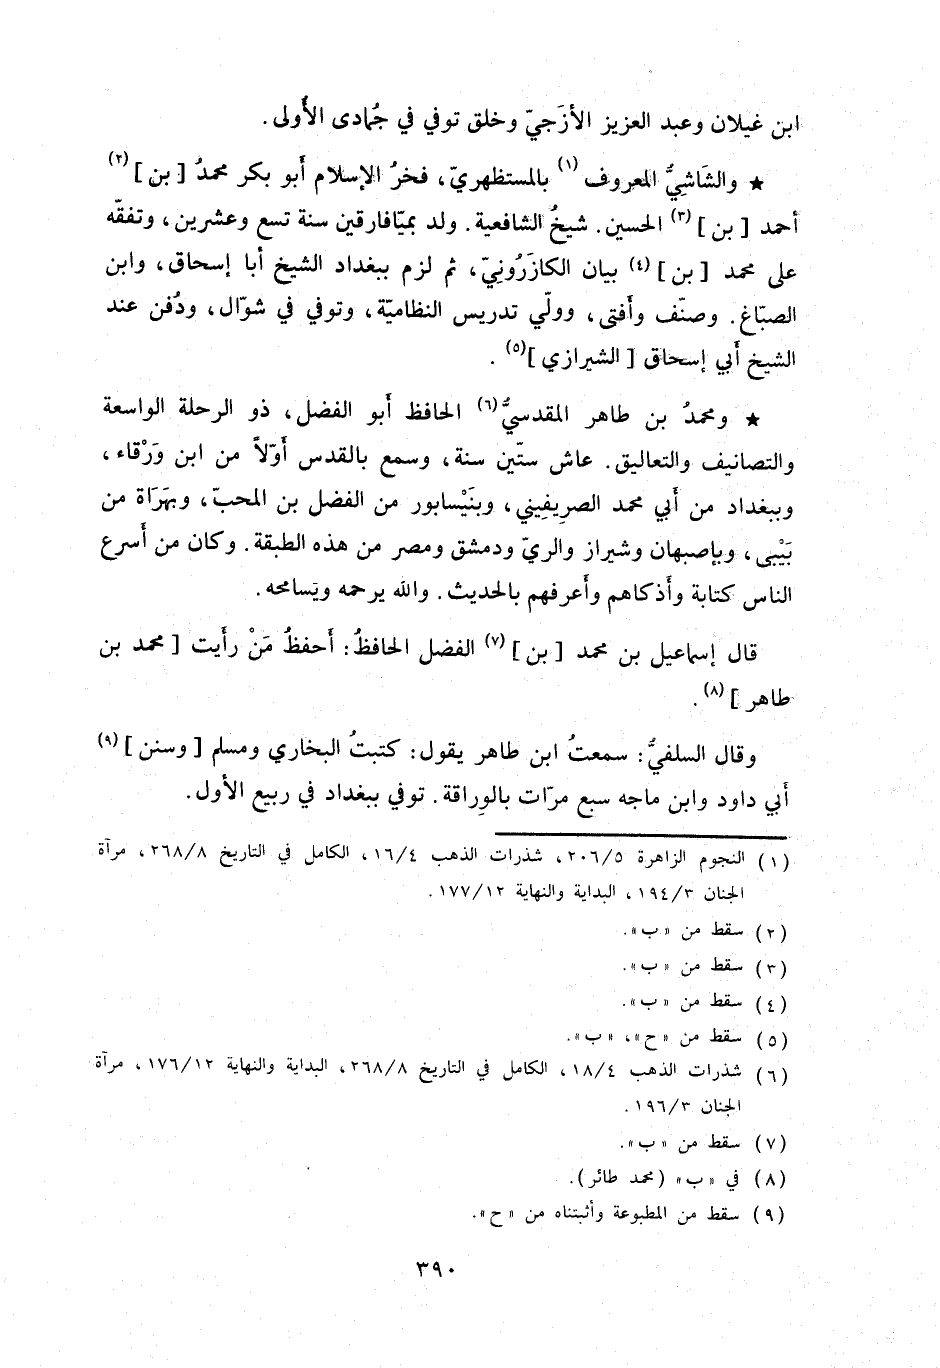 ابن غيلان وعبد العزيز الأزَجيّ وخلق توفي في جُمادى الأُولى.
★ والشَاشِيُّ المعروف (١) بالمستظهريّ، فخرُ الإسلام أَبو بكر محمدُ [ بن ] (٢)
أحمد [ بن ] (٣) الحسين. شيخُ الشافعية. ولد بميّافارقين سنة تسع وعشرين، وتفقّه
على محمد [ بن ] (٤) بيان الكازَرُونِيّ، ثم لزم ببغداد الشيخ أبا إسحاق، وابن
الصبّاغ. وصنّف وأَفتى، وولّي تدريس النظاميّة، وتوفي في شوّال، ودُفن عند
الشيخ أَبي إسحاق [ الشيرازي ](٥) .
★ ومحمدُ بن طاهر المقدسيُّ (٦) الحافظ أَبو الفضل، ذو الرحلة الواسعة
والتصانيف والتعاليق. عاش ستّين سنة، وسمع بالقدس أَوّلاً من ابن وَرْقاء،
وببغداد من أَبي محمد الصريفِيني، وبنَيْسابور من الفضل بن المحبّ، وبهَرَاة من
بَيْبى، وبإصبهان وشيراز والريّ ودمشق ومصر من هذه الطبقة. وكان من أَسرع
الناس كتابة وأَذكاهم وأَعرفهم بالحديث. والله يرحمه ويَسامحه.
قال إسماعيل بن محمد [ بن ] (٧) الفضل الحافظُ: أَحفظُ مَنْ رأَيت [ محمد بن
طاهر ] (٨) .
وقال السلفيُّ: سمعتُ ابن طاهر يقول: كتبتُ البخاري ومسلم [ وسنن ] (٩)
أَبي داود وابن ماجه سبع مرّات بالوِراقة. توفي ببغداد في ربيع الأول.
(١) النجوم الزاهرة ٢٠٦/٥، شذرات الذهب ١٦/٤، الكامل في التاريخ ٢٦٨/٨، مرآة
الجنان ١٩٤/٣، البداية والنهاية ١٧٧/١٢.
(٢) سقط من «ب».
(٣) سقط من «ب».
(٤) سقط من «ب».
(٥) سقط من «ح»، «ب».
(٦) شذرات الذهب ١٨/٤، الكامل في التاريخ ٢٦٨/٨، البداية والنهاية ١٧٦/١٢، مرآة
الجنان ١٩٦/٣.
(٧) سقط من «ب».
(٨) في «ب» (محمد طائر).
(٩) سقط من المطبوعة وأثبتناه من «ح».
٣٩٠